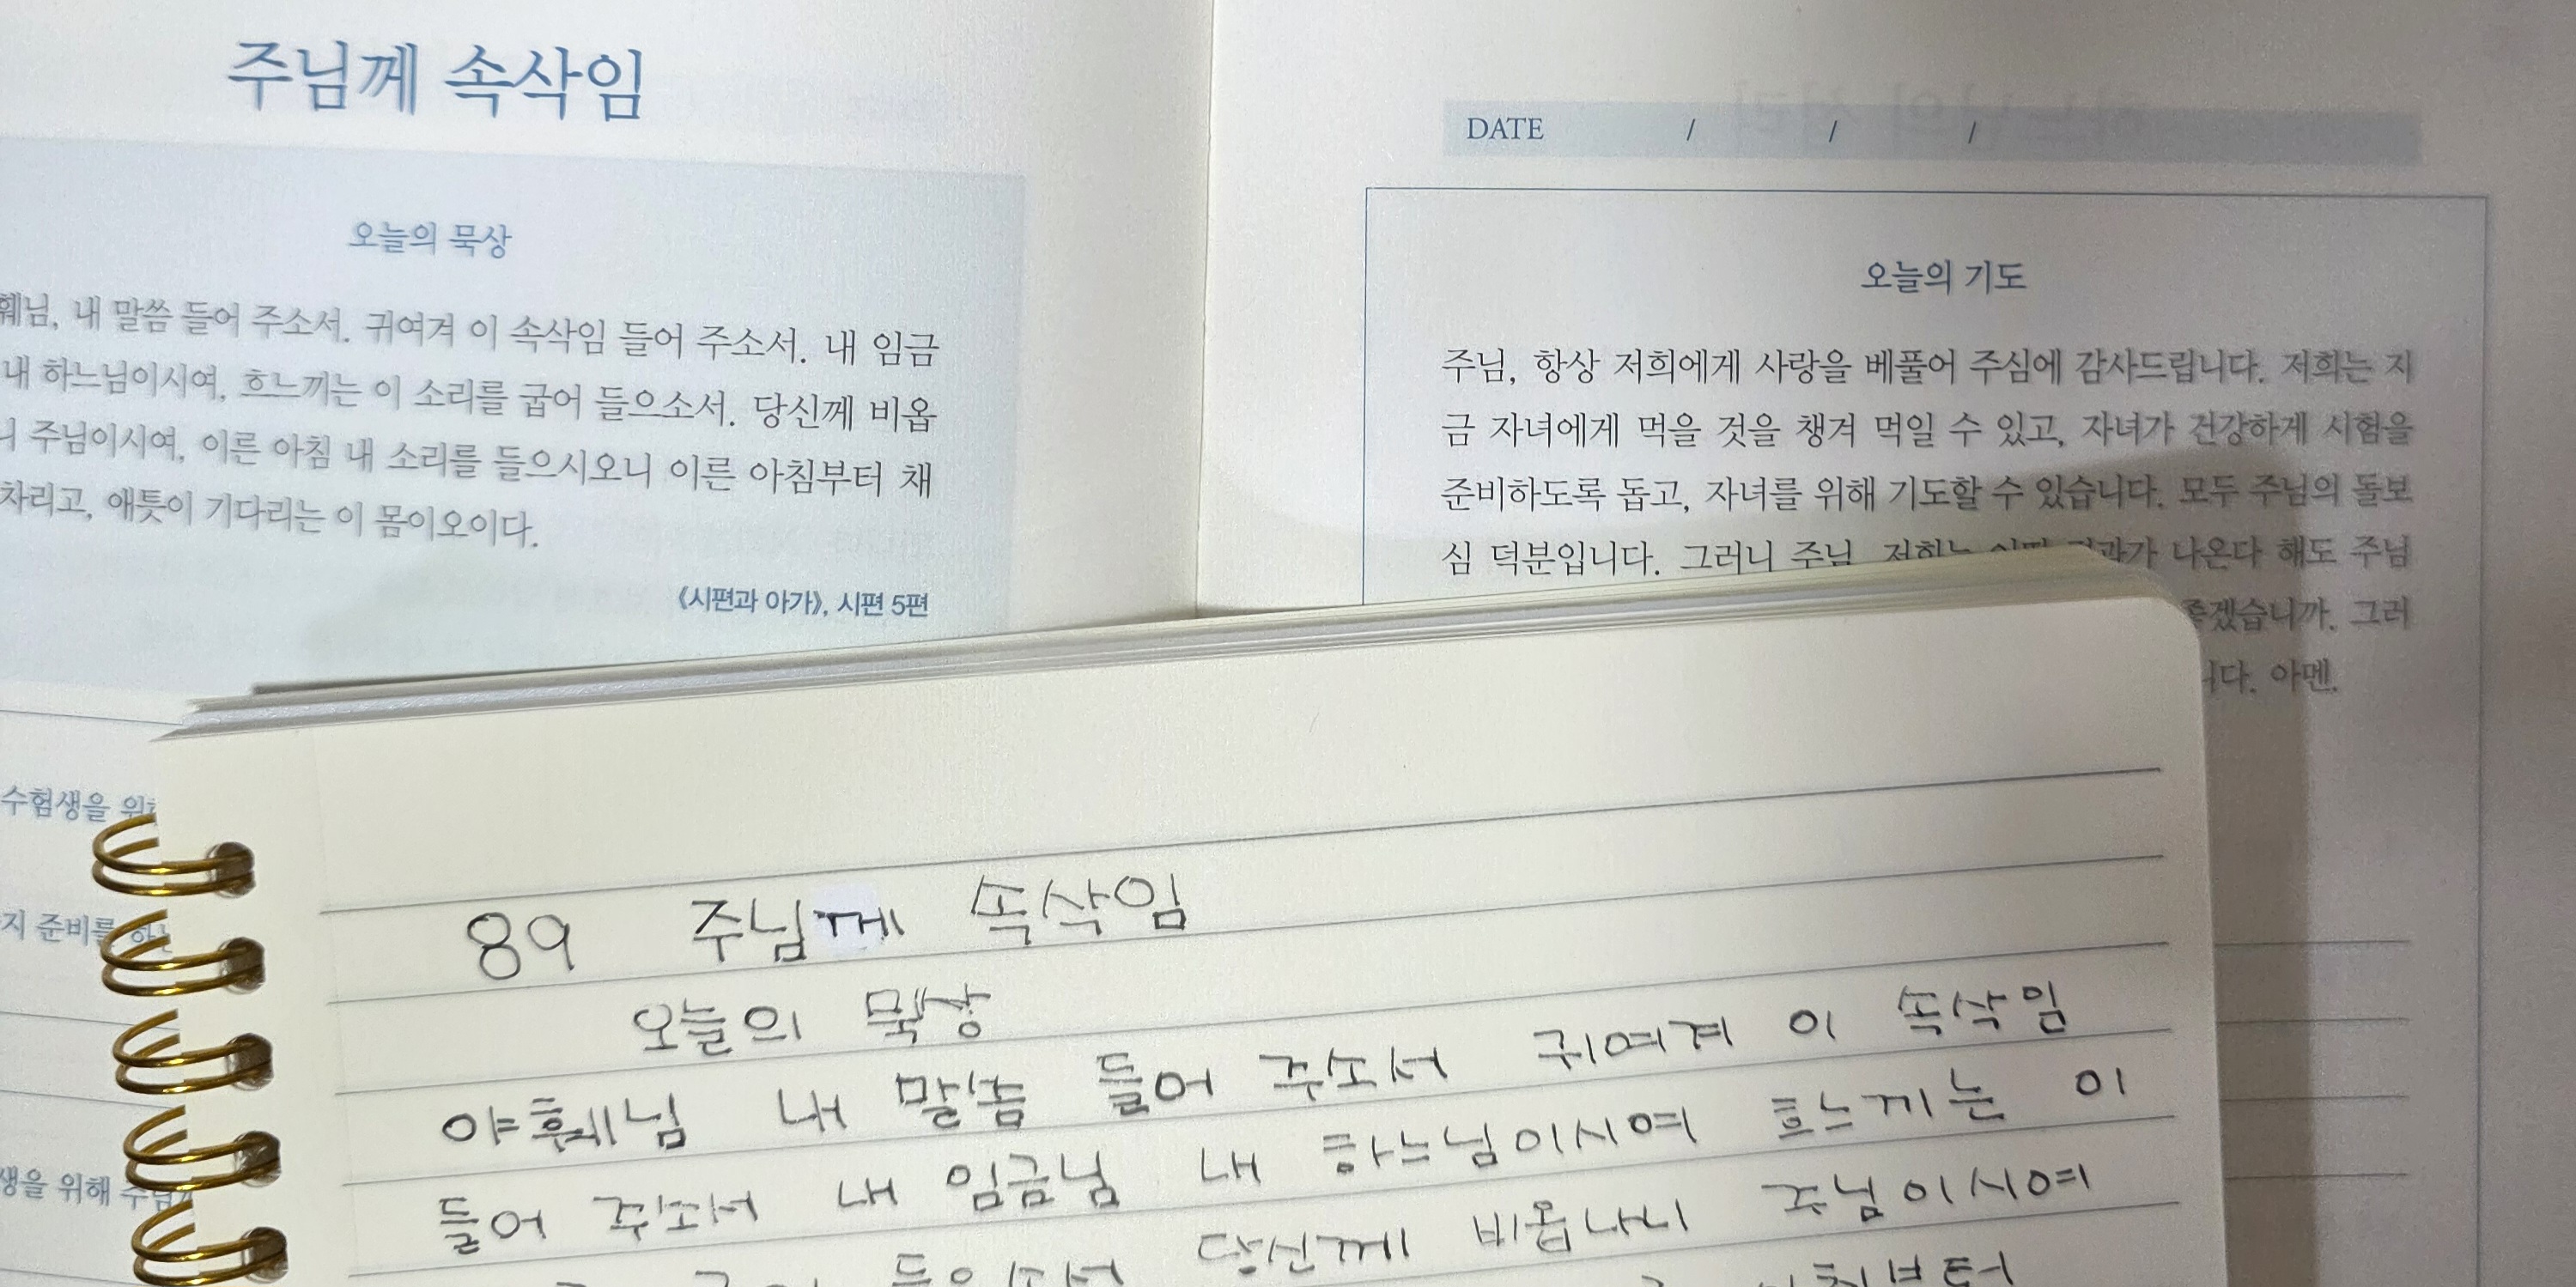 주님께 속삭임
오늘의 묵상
훼님, 내 말씀 들어 주소서. 귀여겨 이 속삭임 들어 주소서. 내 임금
내 하느님이시여, 흐느끼는 이 소리를 굽어 들으소서. 당신께 비옵
니 주님이시여, 이른 아침 내 소리를 들으시오니 이른 아침부터 채
차리고, 애틋이 기다리는 이 몸이오이다.
《시편과 아가》, 시편 5편
수험생을
지 준비를
생을 위해
DATE / / /
오늘의 기도
주님, 항상 저희에게 사랑을 베풀어 주심에 감사드립니다. 저희는 지
금 자녀에게 먹을 것을 챙겨 먹일 수 있고, 자녀가 건강하게 시험을
준비하도록 돕고, 자녀를 위해 기도할 수 있습니다. 모두 주님의 돌보
심 덕분입니다. 그러니 주님, 저희는 나온다 해도 주님
좋겠습니까. 그러
니다. 아멘.
89 주님께 속삭임
오늘의 묵상
야훼님 내 말씀 들어 주소서 귀여겨 이 속삭임
들어 주소서 내 임금님 내 하느님이시여 흐느끼는 이
당신께 비옵나니 주님이시여